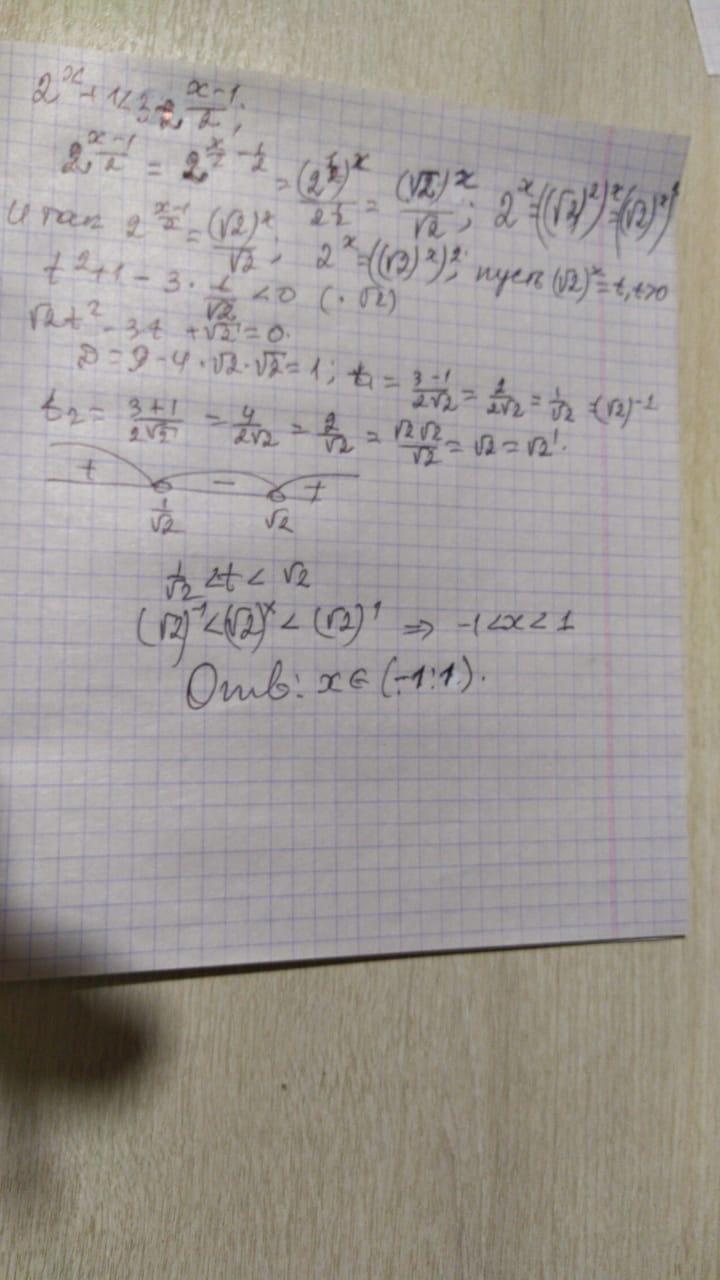 2^x + 1 < 3 · 2^{\frac{x-1}{2}};
2^{\frac{x-1}{2}} = 2^{\frac{x}{2} - \frac{1}{2}} = \frac{(2^{\frac{1}{2}})^x}{2^{\frac{1}{2}}} = \frac{(√2)^x}{√2}; 2^x = ((√2)^2)^x = ((√2)^x)^2
Итак 2^{\frac{x-1}{2}} = \frac{(√2)^x}{√2}; 2^x = ((√2)^x)^2; пусть (√2)^x = t, t>0
t^2 + 1 - 3 · \frac{t}{√2} < 0 (· √2)
√2t^2 - 3t + √2 = 0.
D = 9 - 4 · √2 · √2 = 1; t_1 = \frac{3-1}{2√2} = \frac{2}{2√2} = \frac{1}{√2} = (√2)^{-1}
t_2 = \frac{3+1}{2√2} = \frac{4}{2√2} = \frac{2}{√2} = \frac{√2√2}{√2} = √2 = √2^1.
+ − +
\frac{1}{√2} √2
\frac{1}{√2} < t < √2
(√2)^{-1} < (√2)^x < (√2)^1 ⇒ -1 < x < 1
Отв: x ∈ (-1; 1).